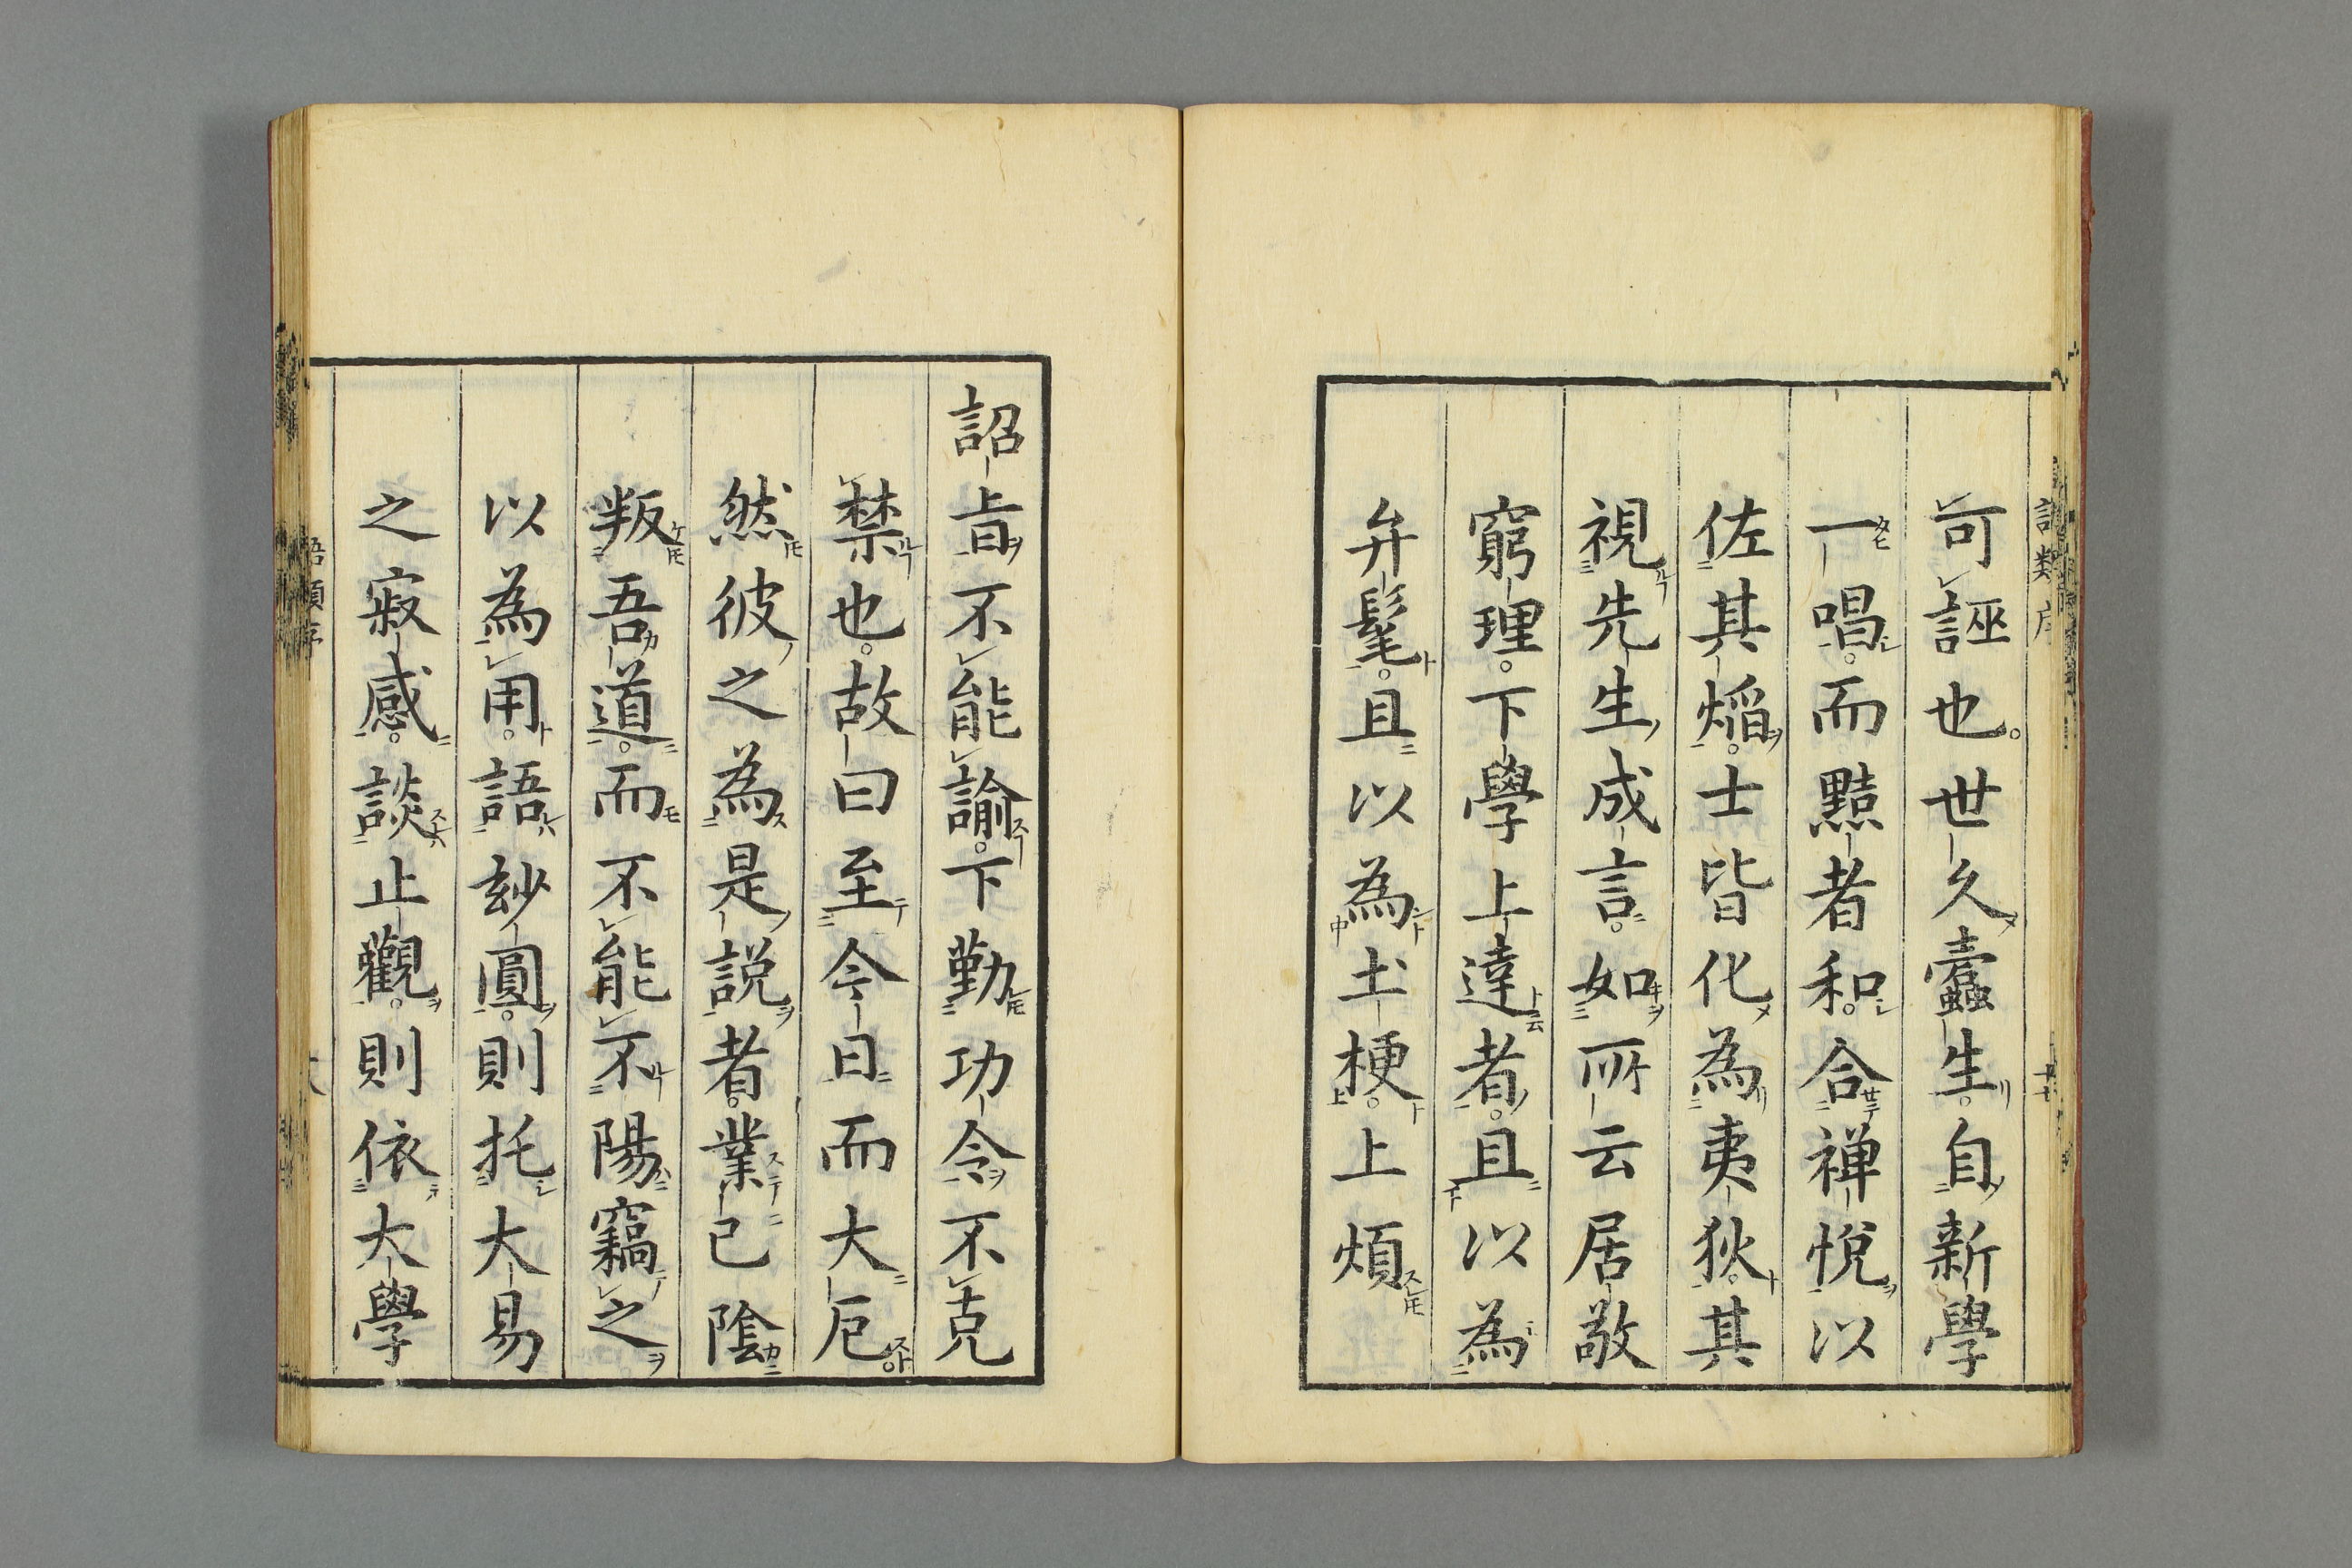 可誣也。世久蠧生。自新學
一唱。而黠者和。合禅悅以
佐其熖。士皆化為夷狄。其
視先生成言。如所云居敬
窮理。下學上達者。且以為
弁髦。且以為土梗。上煩
詔旨不能諭。下勤功令不克
禁也。故曰至今日而大厄。
然彼之為是説者。業已陰
叛吾道。而不能不陽竊之
以為用。語玅圓。則托大易
之寂感。談止觀。則依大學